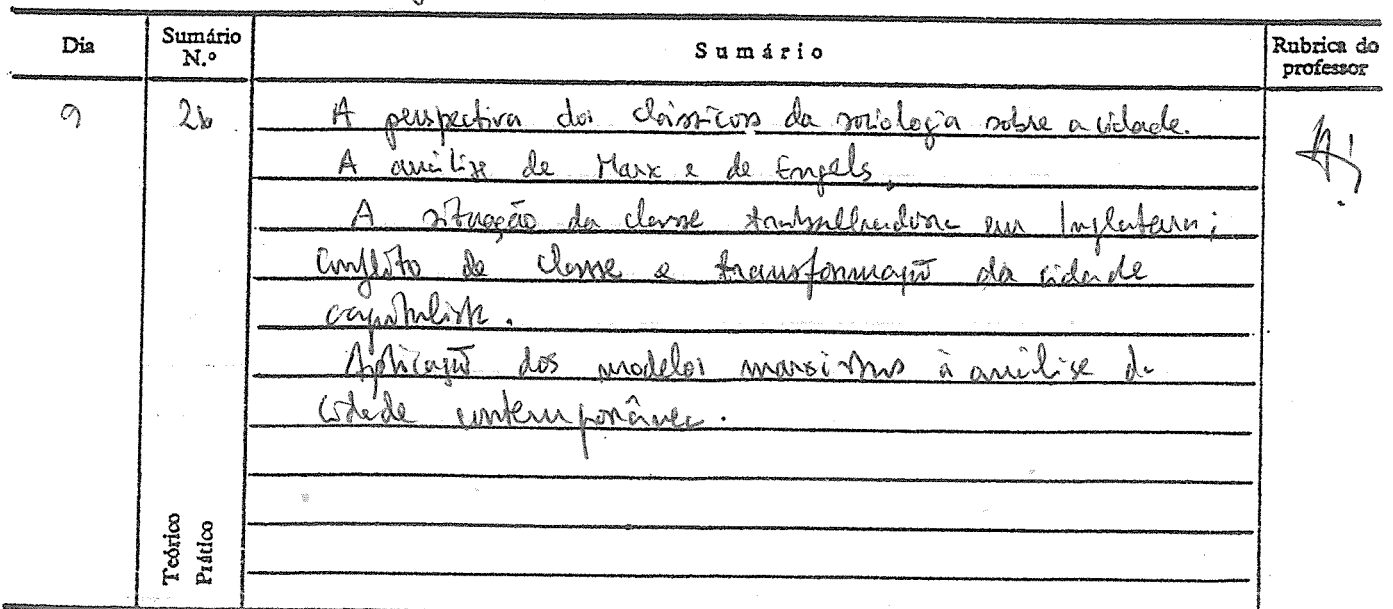 Dia Sumário N.º Sumário Rubrica do professor
9 2b A perspectiva dos clássicos da sociologia sobre a cidade.
A análise de Marx e de Engels.
A situação da classe trabalhadora em Inglaterra;
Conflito de classe e transformação da cidade
capitalista.
Aplicação dos modelos marxistas à análise da
cidade contemporânea.
Teórico
Prático